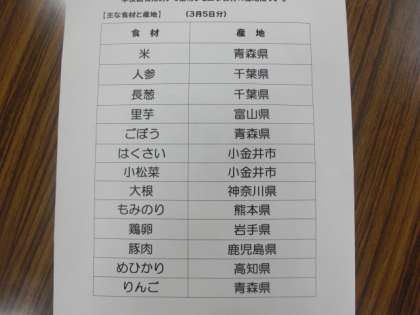 【主な食材と産地】 (3月5日分)
食 材 産 地
米 青森県
人参 千葉県
長葱 千葉県
里芋 富山県
ごぼう 青森県
はくさい 小金井市
小松菜 小金井市
大根 神奈川県
もみのり 熊本県
鶏卵 岩手県
豚肉 鹿児島県
めひかり 高知県
りんご 青森県